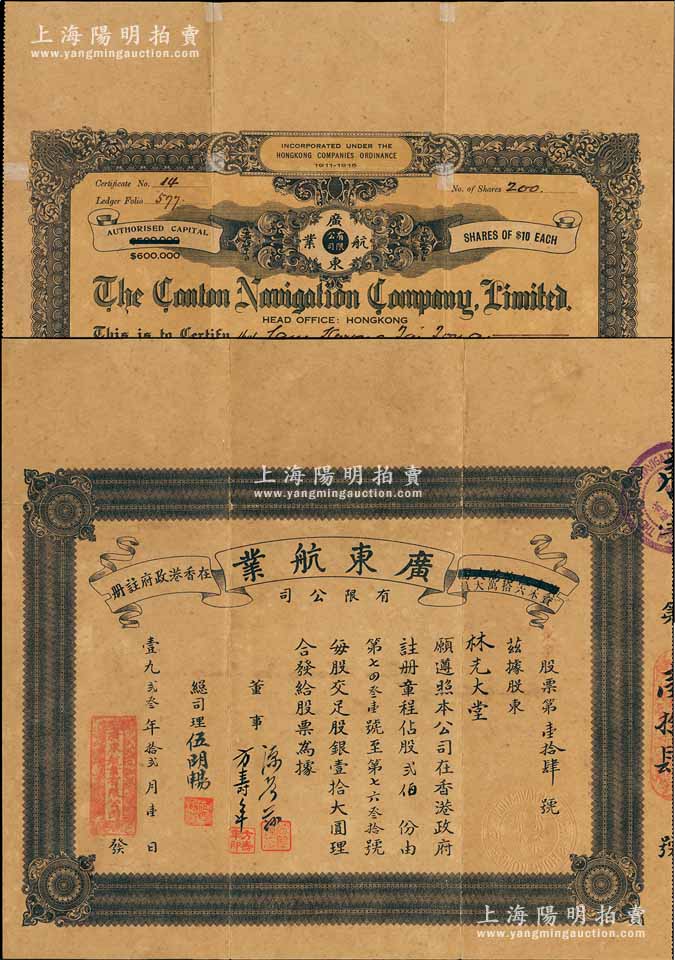 上海陽明拍賣
www.yangmingauction.com
INCORPORATED UNDER THE
HONGKONG COMPANIES ORDINANCE
1911-1915
Certificate No. 14
No. of Shares 200.
Ledger Folio 577.
AUTHORISED CAPITAL
$600,000
SHARES OF $10 EACH
廣東航業
有限公司
The Canton Navigation Company, Limited.
HEAD OFFICE: HONGKONG
This is to Certify that
上海陽明拍賣
www.yangmingauction.com
廣東航業
有限公司
在香港政府註册
股票第壹拾肆號
茲據股東
林光大堂
願遵照本公司在香港政府
註册章程佔股弍伯份由
第七四叁壹號至第七六叁拾號
每股交足股銀壹拾大圓理
合發給股票為據
董事
方壽年
總司理伍朗暢
壹九弍叁年拾弍月壹日
發
第壹拾肆號
上海陽明拍賣
www.yangmingauction.com